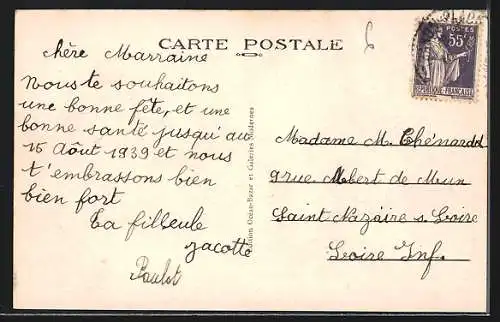 CARTE POSTALE
6
POSTES
55c
REPUBLIQUE FRANCAISE
chère Marraine
Nous te souhaitons
une bonne fête, et une
bonne santé jusqu'au
15 Août 1939 et nous
t'embrassons bien
bien fort
Ta filleule
Jacotte
Paulot
Edition Océan-Bazar et Galeries
Madame M. Thénardot
9 rue Albert de Mun
Saint Nazaire s. Loire
Loire Inf.